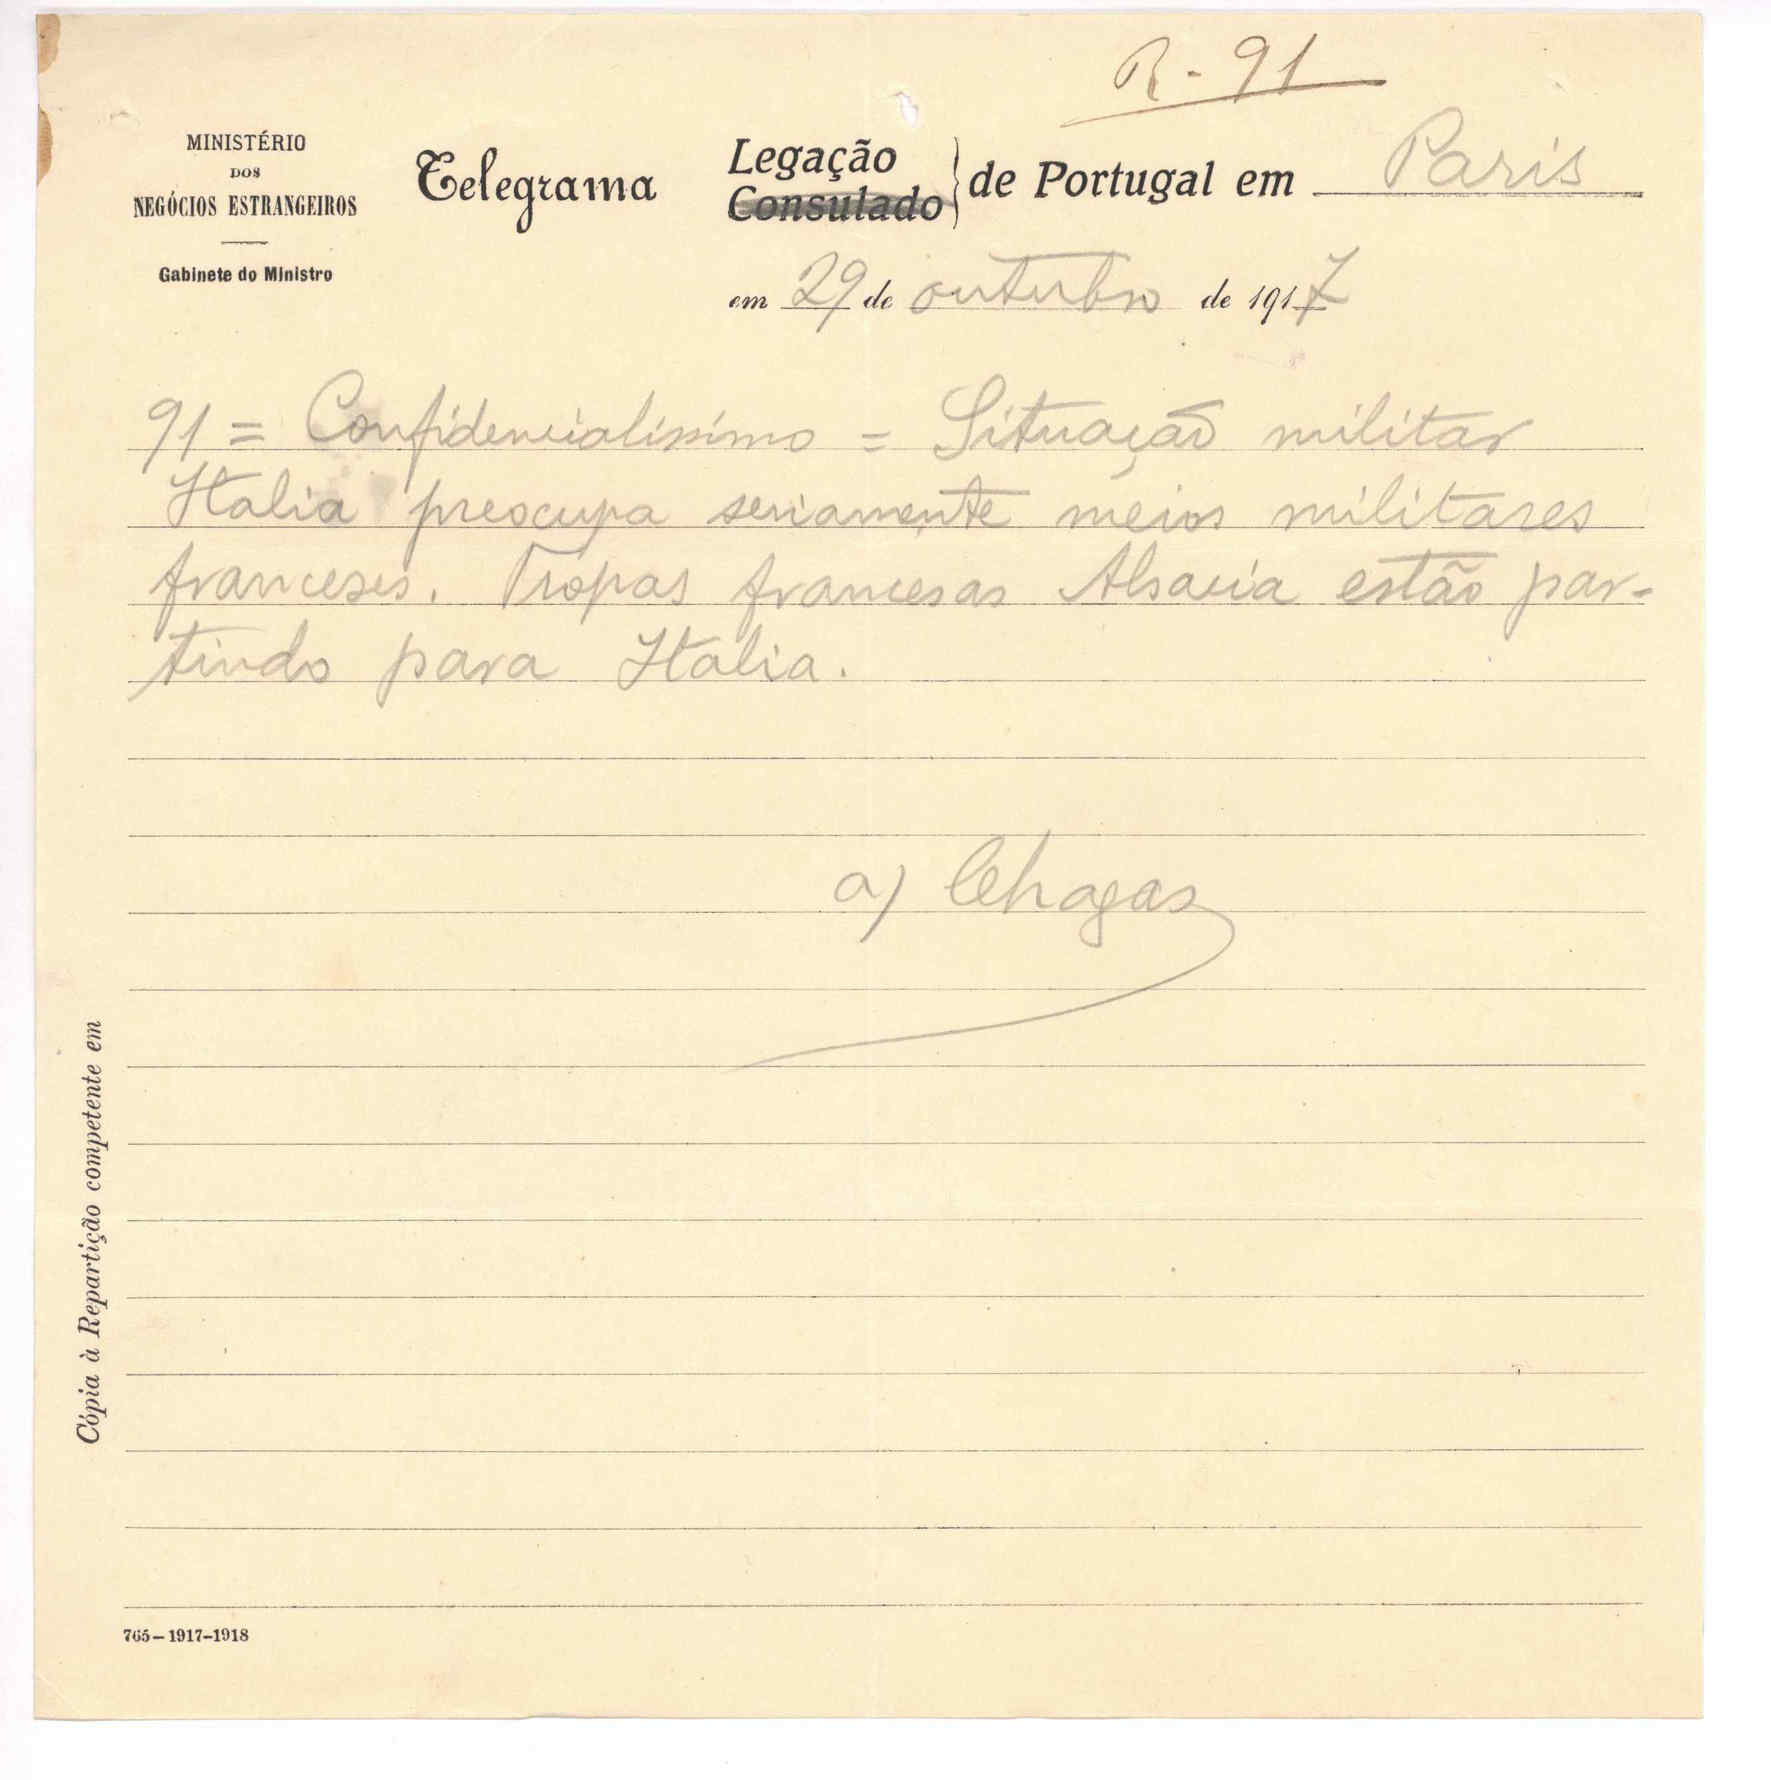 R - 91
MINISTÉRIO
DOS
NEGÓCIOS ESTRANGEIROS
Gabinete do Ministro
Telegrama
Legação
Consulado
de Portugal em Paris
em 29 de outubro de 1917
91 = Confidencialissimo = Situação militar
Italia preocupa seriamente meios militares
franceses. Tropas francesas Alsacia estão par-
tindo para Italia.
a) Chagas
Cópia à Repartição competente em
765-1917-1918